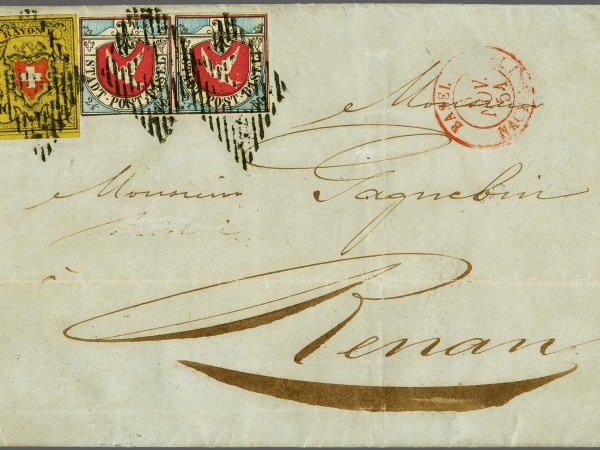 RAYON
STADT·POST·BASEL
STADT·POST·BASEL
BASEL
NOV.
Monsieur
Monsieur Gagnebin
à
Renan